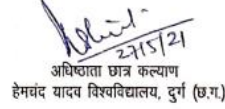 27/5/21
अधिष्ठाता छात्र कल्याण
हेमचंद यादव विश्वविद्यालय, दुर्ग (छ.ग.)